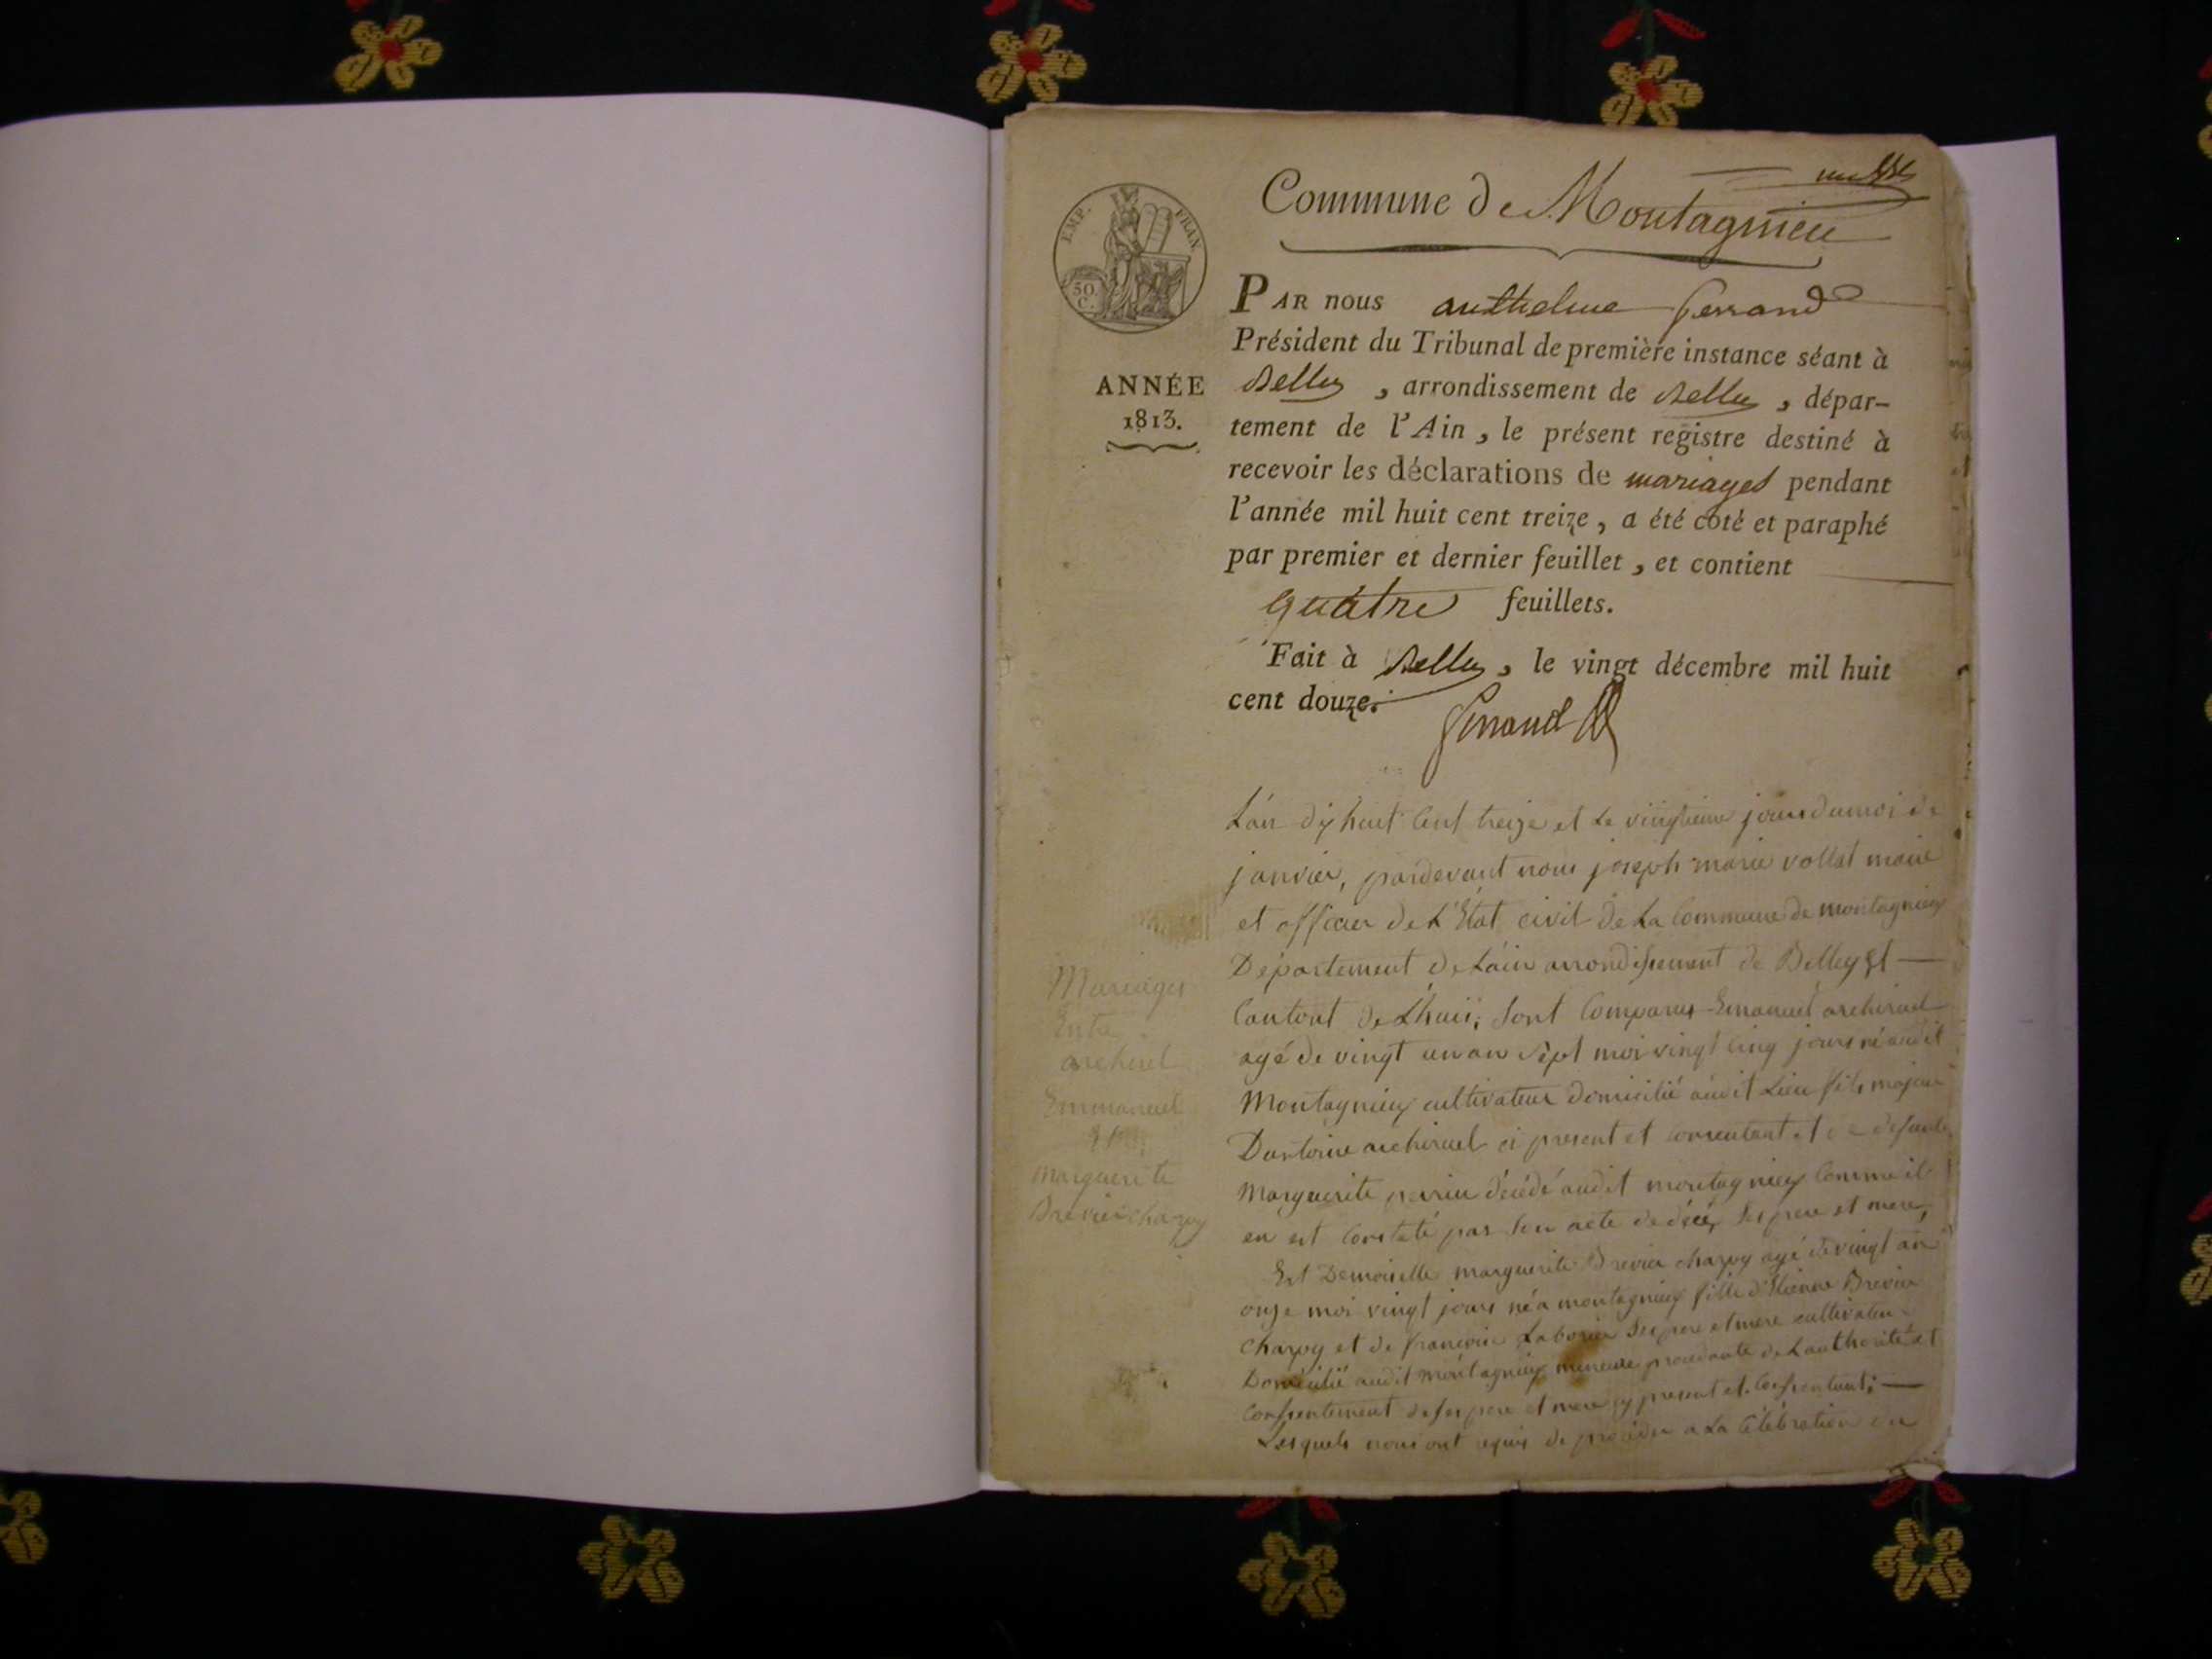 Commune de Montagnieu
EMP. FRAN.
50.
C.
ANNÉE
1813.
PAR nous anthelme ferrand
Président du Tribunal de première instance séant à
Belley, arrondissement de Belley, dépar-
tement de l'Ain, le présent registre destiné à
recevoir les déclarations de mariages pendant
l'année mil huit cent treize, a été coté et paraphé
par premier et dernier feuillet, et contient
quatre feuillets.
Fait à Belley, le vingt décembre mil huit
cent douze.
ferrand
L'an dix huit cent treize et le vingtieme jour du moi de
janvier, pardevant nous joseph marie vollat maire
et officier de L'Etat civil de La Commune de montagnieux
Departement de Lain arrondissement de Belley Et
Cantont de Lhuii; Sont Comparus Emanuel archiruel
agé de vingt un an sept moi vingt cinq jours né audit
Montagnieux cultivateur domicilié audit Lieu fils majeur
Dantoine archiruel ci present et consentant et de defunte
Marguerite perrin décédé audit montagnieux Comme il
en est Constaté par Son acte de décéz Ses pere et mere,
Et Demoiselle marguerite Brevier chapoy agé de vingt an
onze moi vingt jours né a montagnieux fille d'Etienne Brevier
chapoy et de françoise Laborier Ses pere et mere cultivateur
Domicilié audit montagnieux mineure procedante de Lauthorité et
Consentement de ses pere et mere cy present et Consentant;
Lesquels nous ont requis de proceder a La Célébration du
Mariages
Entre
archiruel
Emmanuel
Et
Marguerite
Brevier chapoy